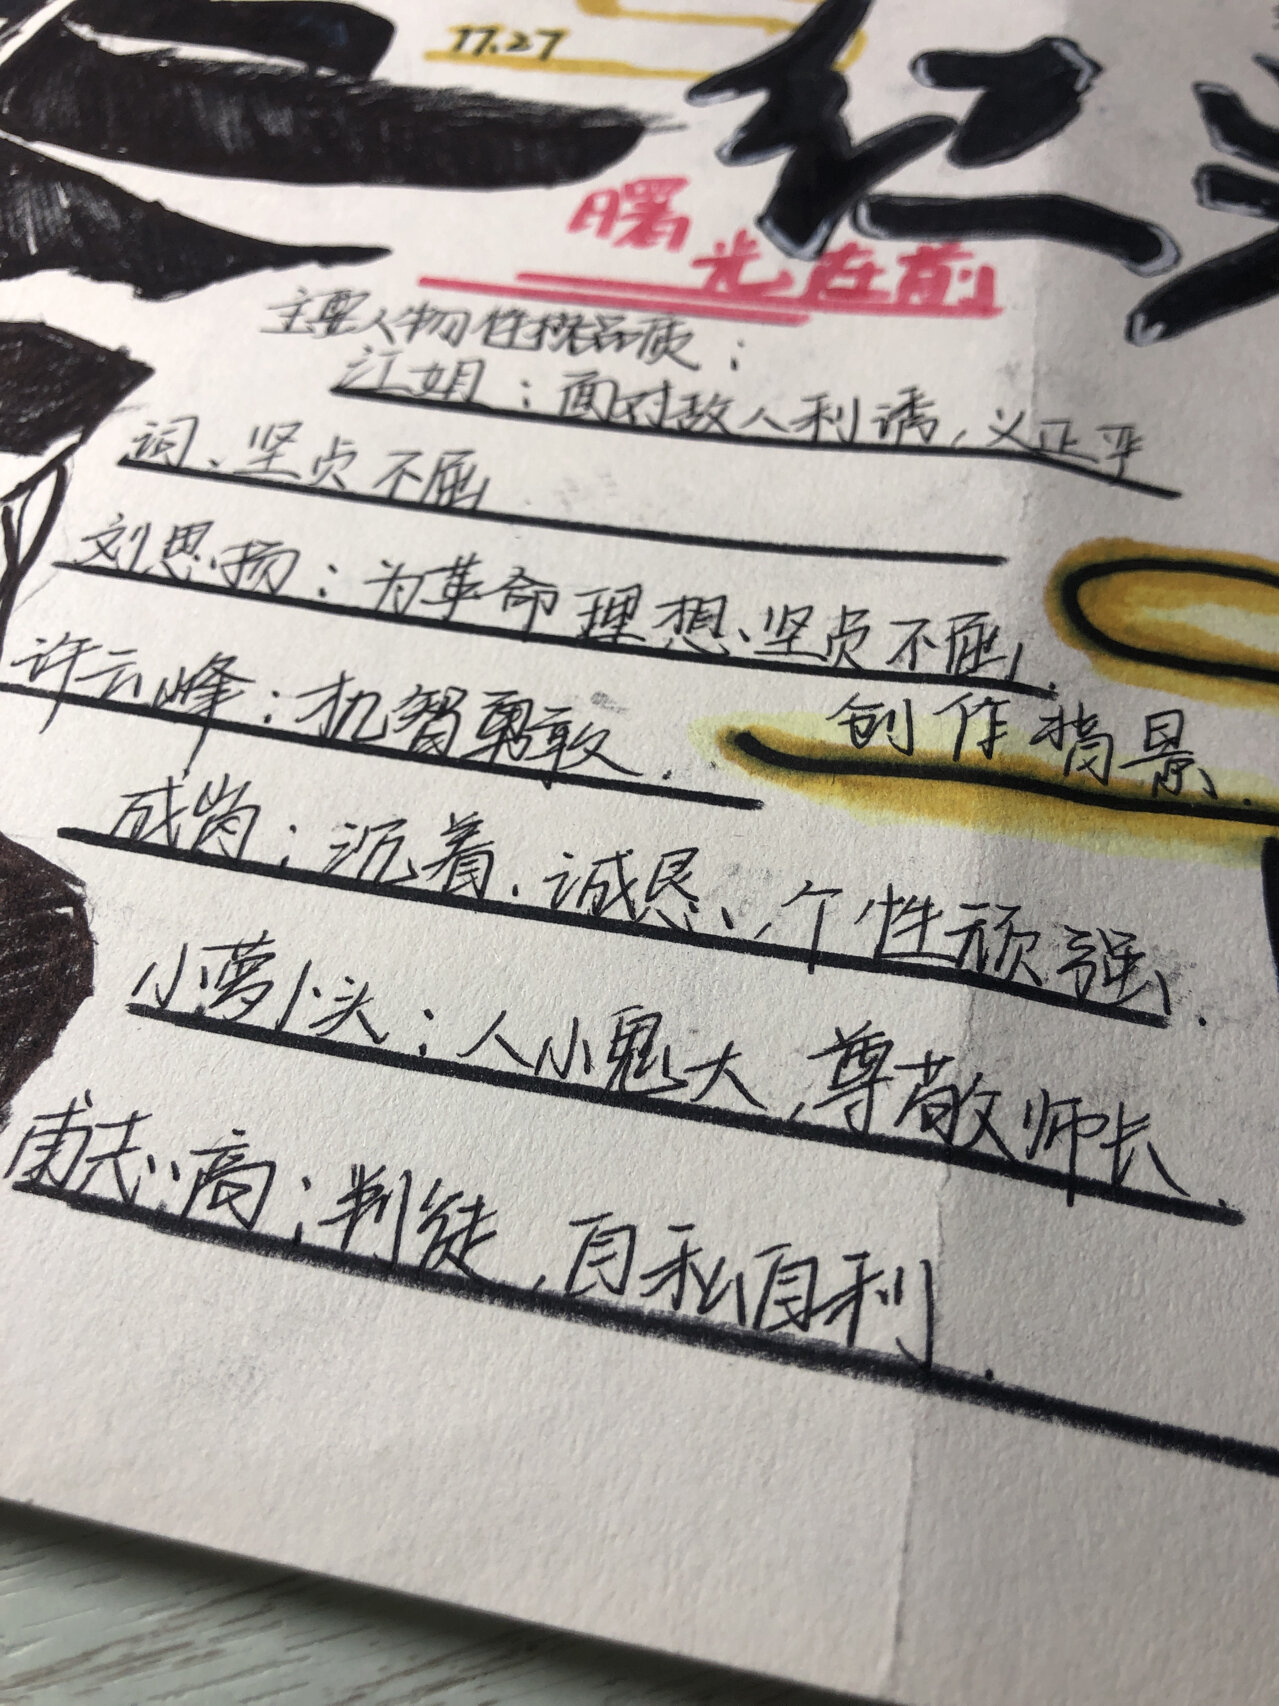 11.27
红
曙光在前
主要人物性格品质：
江姐：面对敌人利诱，义正严
词、坚贞不屈
刘思扬：为革命理想、坚贞不屈.
许云峰：机智勇敢.
创作背景.
成岗：沉着.诚恳、个性顽强.
小萝卜头：人小鬼大，尊敬师长.
甫志高：判徒，自私自利.